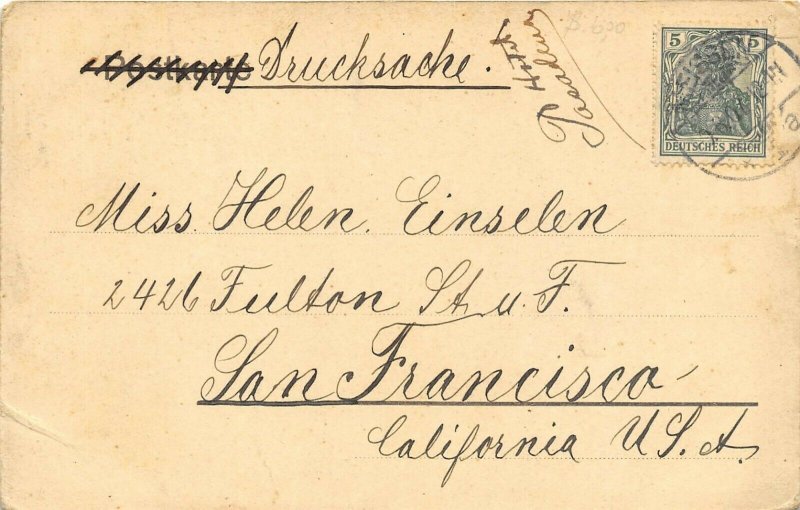 Postkarte Drucksache.
5 5
DEUTSCHES REICH
Miss. Helen. Einselen
2426 Fulton St. u. F.
San Francisco
California U.S.A.